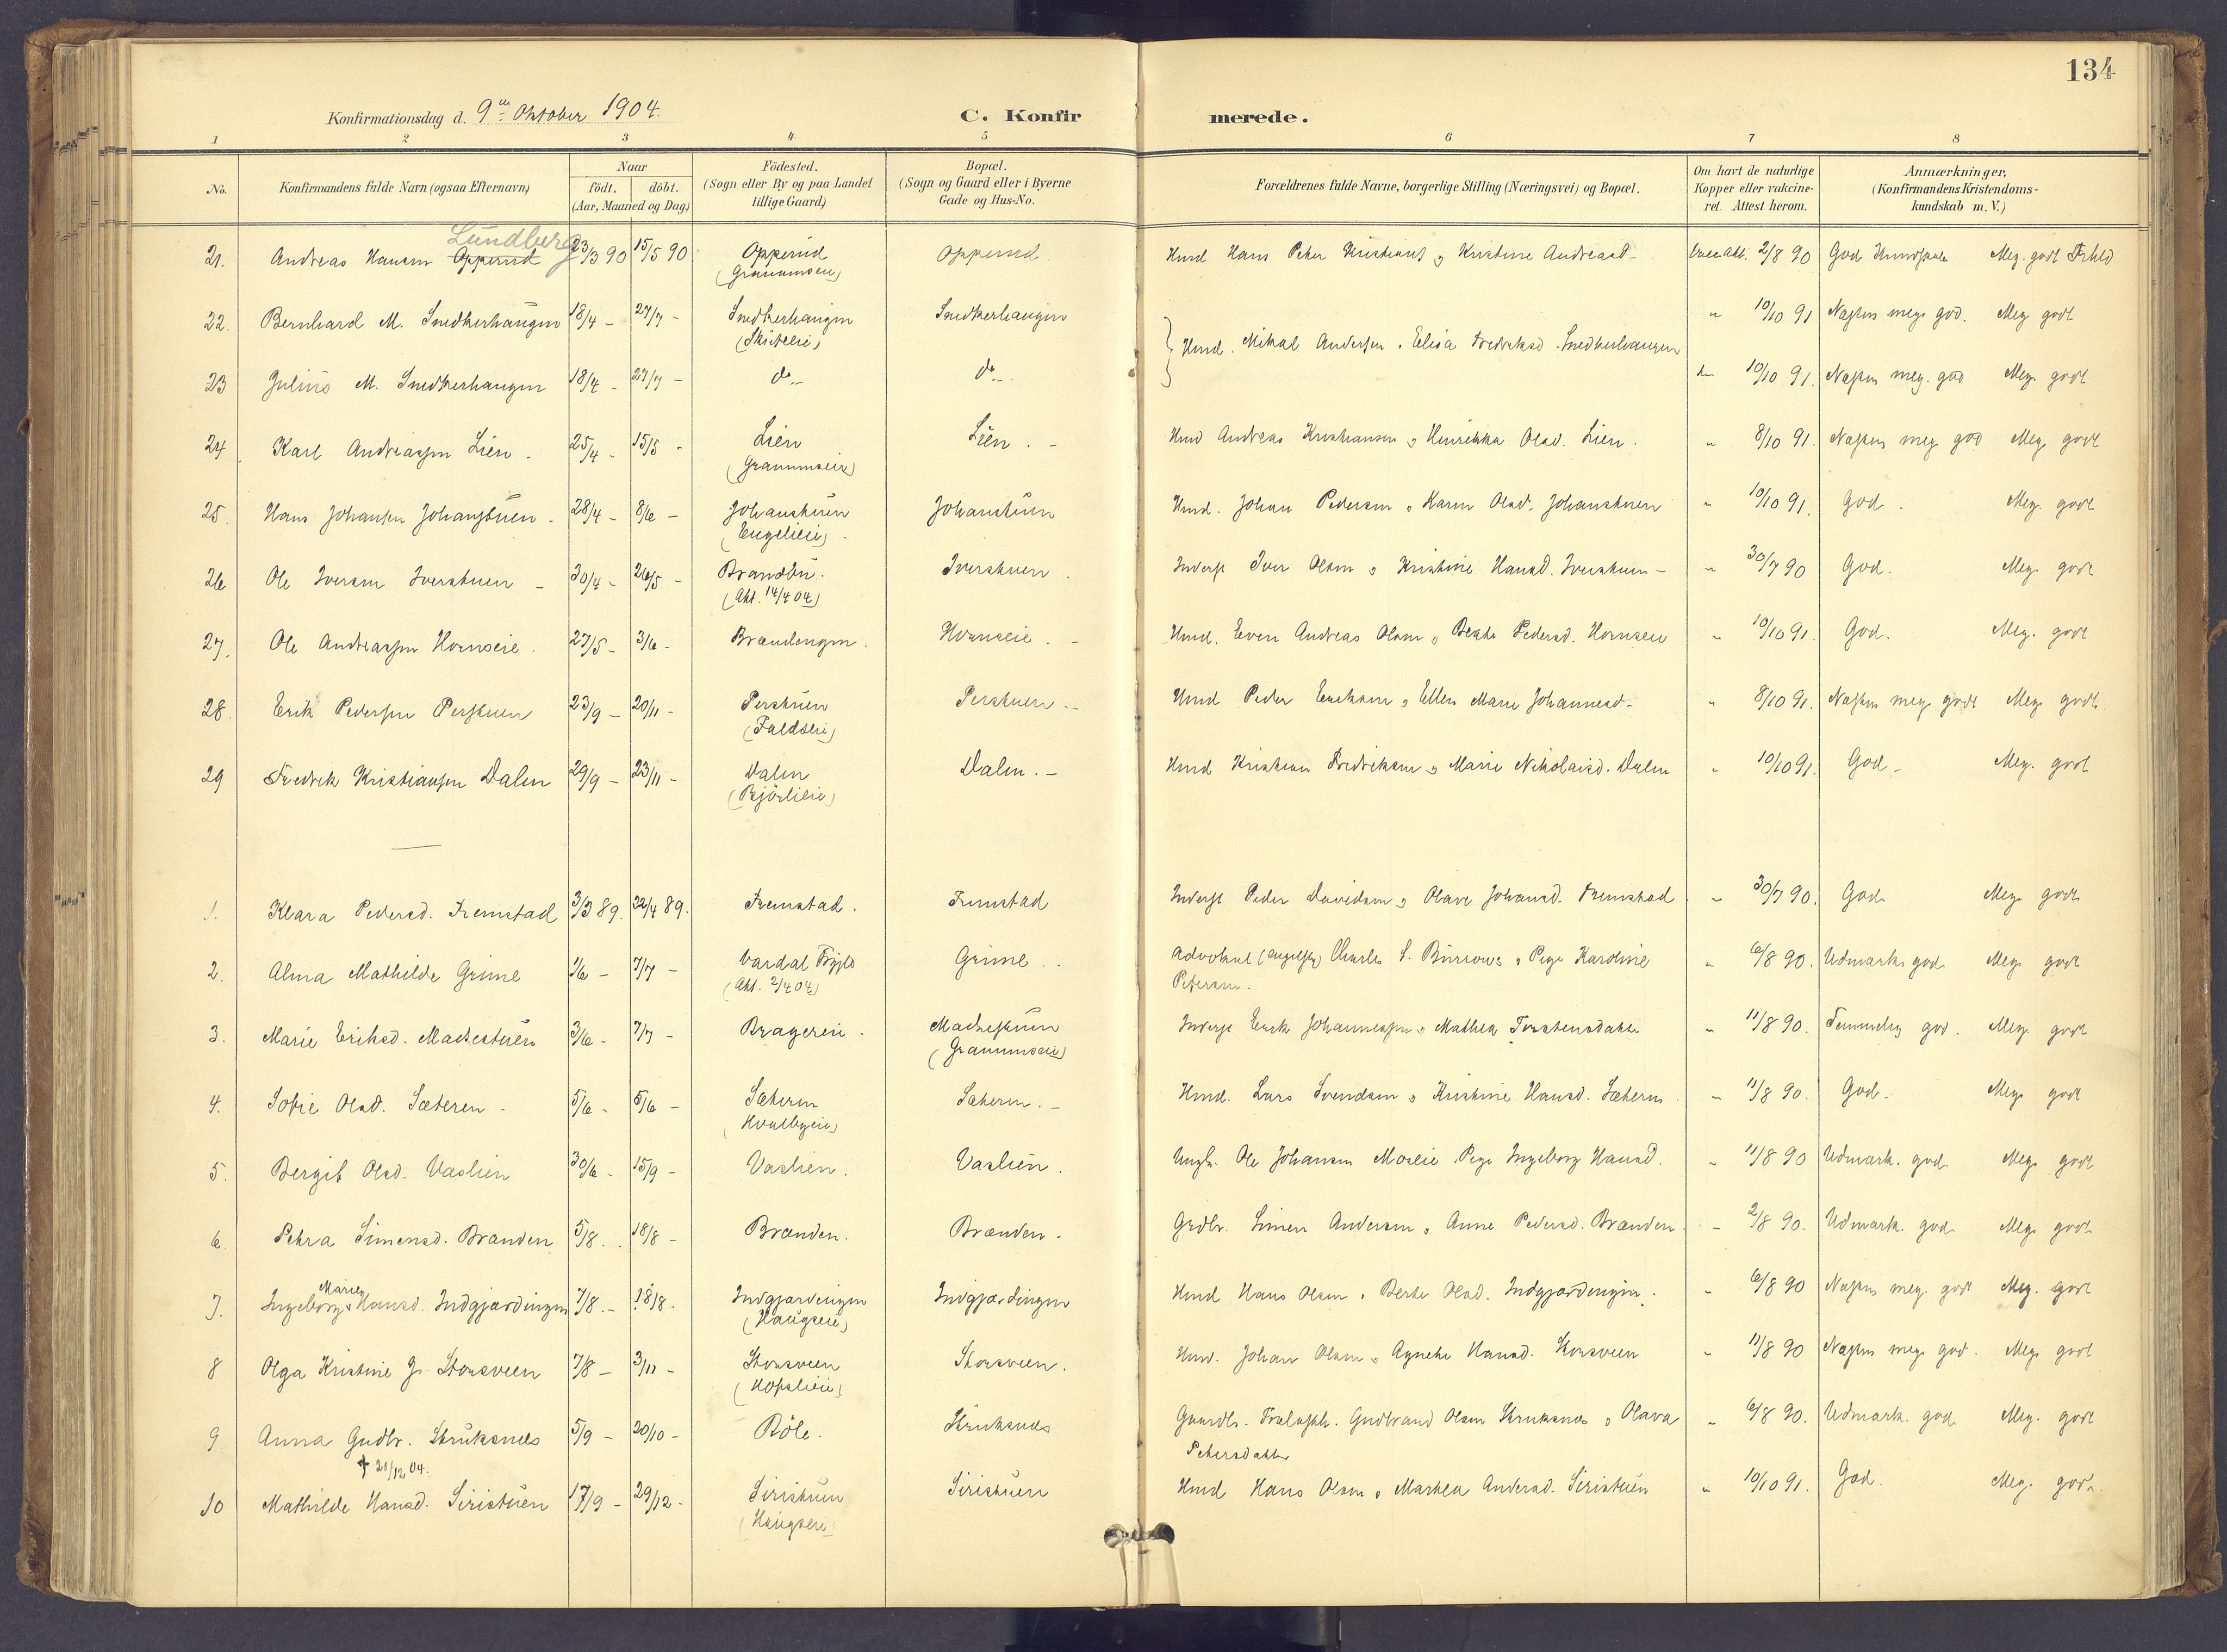 134
Konfirmationsdag d. 9de Oktober 1904.
C. Konfirmerede.
1 2 3 4 5 6 7 8
No. Konfirmandens fulde Navn (ogsaa Efternavn) Naar födt. döbt. (Aar, Maaned og Dag) Födested. (Sogn eller By og paa Landet tillige Gaard) Bopæl. (Sogn og Gaard eller i Byerne Gade og Hus-No. Forældrenes fulde Navne, borgerlige Stilling (Næringsvei) og Bopæl. Om havt de naturlige Kopper eller vakcineret. Attest herom. Anmærkninger, (Konfirmandens Kristendomskundskab m. V.)
Lundberg
21. Andreas Hansen Opperud 23/3 90 15/5 90 Opperud Opperud Hmd Hans Peter Kristians og Kristine Andreasd. 2/8 90 God Kundskab Meg. godt Frhld
22. Bernhard M. Snedkerhaugen 18/4 - 27/7 - Snedkerhaugen Snedkerhaugen " 10/10 91 Næsten meg. god. Meg godt
Hmd. Mikal Andersen Elisa Fredriksd. Snedkerhaugen
23 Julius M. Snedkerhaugen 18/4 - 27/7 - do.- do.- 10/10 91. Næsten meg. god Meg. godt
24 Karl Andreassen Lien. 25/4 - 15/5 - Lien Lien. - Hmd Andreas Kristiansen og Hinrikka Olsd. Lien. " 8/10 91. Næsten meg god Meg godt
25. Hans Johansen Johanstuen. 28/4 - 8/6 - Johanstuen (Engelieie) Johanstuen Hmd. Johan Pedersen Karen Olsd. Johanstuen " 10/10 91. God. Meg. godt
26 Ole Iversen Iverstuen - 30/4 - 26/5 - Brandbu. (Att. 14/4 04) Iverstuen. Inderst Iver Olsen og Kristine Hansd. Iverstuen - " 30/7 90 God. Meg. godt
27. Ole Andreassen Hornseie. 27/5 - 3/6 - Brændengen. Hornseie. - Hmd. Even Andreas Olsen Beate Pedersd. Hornseie " 10/10 91. God. Meg. godt
28. Erik Pedersen Perstuen 23/9 - 20/11 - Perstuen (Faldseie) Perstuen.- Hmd Peder Eriksen Ellen Marie Johannesd. " 8/10 91. Næsten meg godt Meg. godt
29 Fredrik Kristiansen Dalen 29/9 - 23/11 - Dalen (Bjørlieie) Dalen. - Hmd Kristian Fredriksen og Marie Nikolaisd. Dalen " 10/10 91. God. Meg. godt
1. Klara Pedersd. Fremstad 3/3 89. 22/4 89. Fremstad. Fremstad Inderst Peder Davidsen og Olave Johansd. Fremstad. " 30/7 90. God Meg. godt
2. Alma Mathilde Grime 1/6 - 7/7 - Vardal (Att. 2/4 04) Grime.. Advokat Charles S. Burrows Pige Karoline " 6/8 90. Udmærk. god. Meg godt
Petersen.
3. Marie Eriksd. Madsestuen 3/6 - 7/7 - Bragereie. Madsestuen Inderst Erik Johannessen Mathea Torstensdatter " 11/8 90. Temmelig god. Meg. godt
4. Sofie Olsd. Sæteren - 5/6 - 5/6 - Sæteren Hvalbyeie) Sæteren. - Hmd. Lars Svendsen og Kristine Hansd. Sæteren. " 11/8 90. God. Meg godt
5. Bergit Olsd. Vaslien 30/6 - 15/9 - Vaslien. Vaslien. Ungk. Ole Johansen Moseie Pige Ingeborg Hansd. " 11/8 90 Udmærk. god. Meg godt
6. Petra Simensd. Brænden 5/8.. 18/8 - Brænden. Brænden. Grdbr. Simen Andersen Anne Pedersd. Brænden. - 2/8 90. Udmærk. god Meg. godt
Marie
7. Ingeborg Hansd. Indgjærdingen 7/8.- 18/8. Indgjærdingen (Haugseie) Indgjærdingen Hmd Hans Olsen Berte Olsd. Indgjærdingen. " 6/8 90 Næsten meg. godt Meg. godt
8 Olga Kristine J. Storsveen 7/8 - 3/11 - Storsveen Storsveen. Hmd. Johan Olsen Agnethe Hansd. Storsveen " 11/8 90 Næsten meg. god. Meg. godt
9 Anna Gudbr. Struksnæs 5/9 - 20/10 - Röle. Struksnæs Gaardbr. Gudbrand Olsen Struksnæs Olava " 6/8 90. Udmærk. god Meg. godt
Petersdatter
† 21/12 04.
10 Mathilde Hansd. Siristuen 17/9 - 29/12 - Siristuen (Haugseie) Siristuen Hmd Hans Olsen Marthea Andersd. Siristuen " 10/10 91. God. Meg. godt.